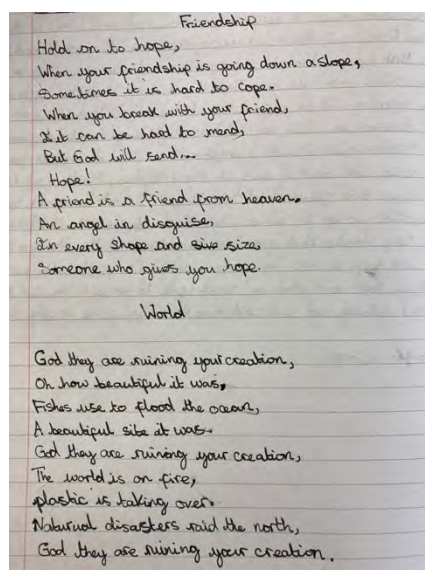 Friendship
Hold on to hope,
When your friendship is going down a slope,
Sometimes it is hard to cope.
When you break with your friend,
It can be hard to mend,
But God will send...
Hope!
A friend is a friend from heaven.
An angel in disguise,
In every shape and size,
Someone who gives you hope.
World
God they are ruining your creation,
Oh how beautiful it was,
Fishes use to flood the ocean,
A beautiful site it was.
God they are ruining your creation,
The world is on fire,
plastic is taking over.
Naturual disasters raid the north,
God they are ruining your creation.